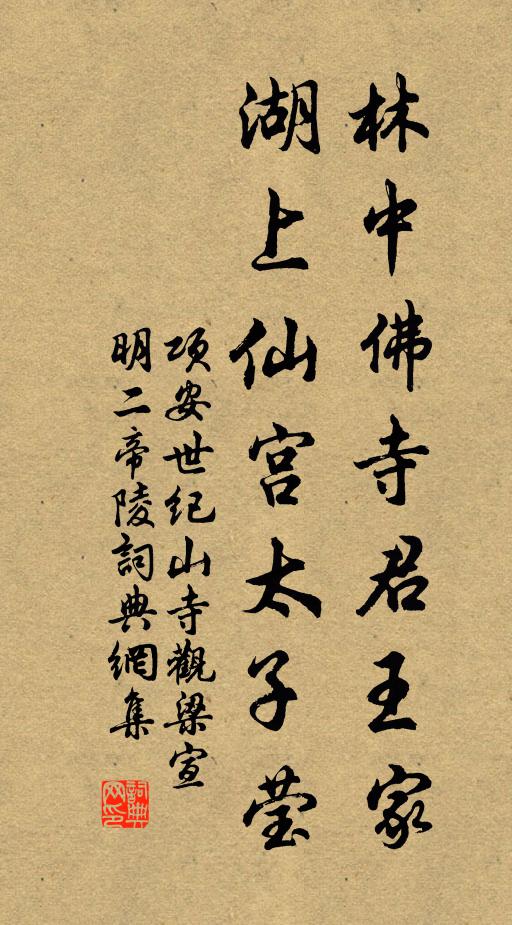 林中佛寺君王家
湖上仙宫太子莹
项安世紀山寺觀梁宣
明二帝陵詞典網集
詞典
网印